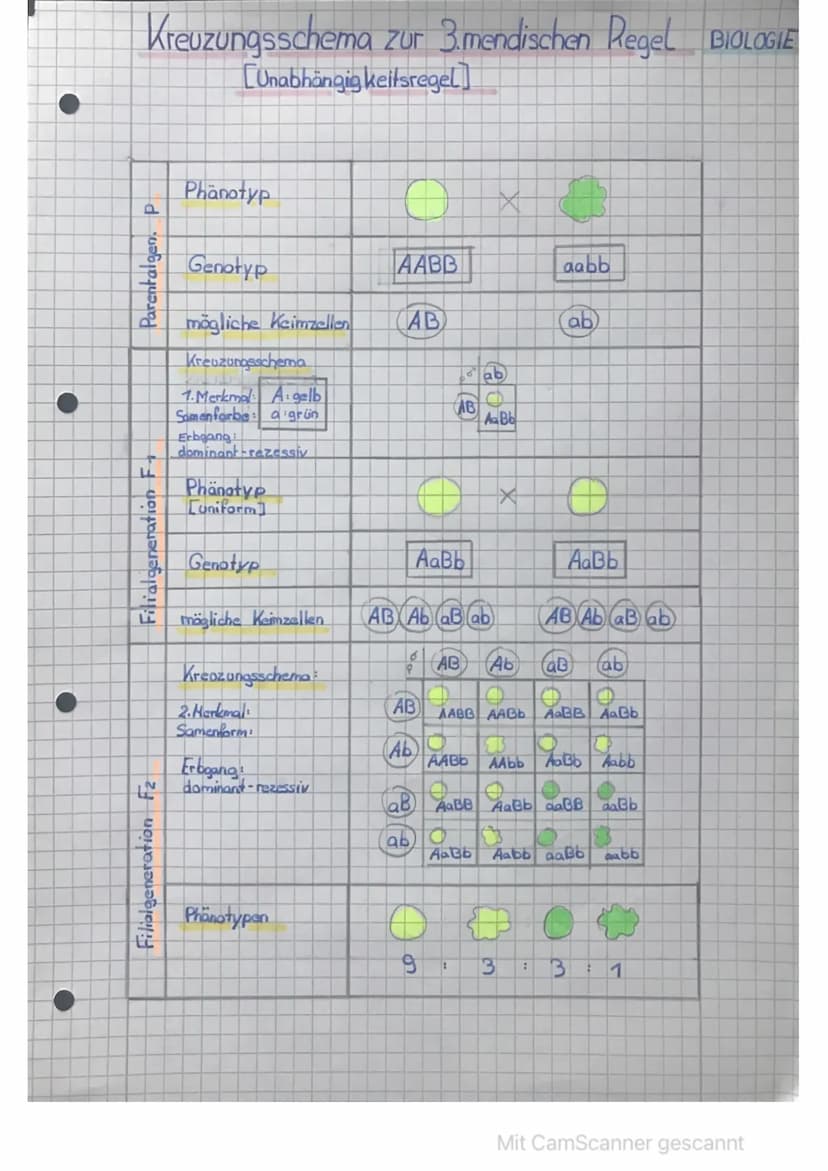 Kreuzungsschema zur 3.mendischen Regel BIOLOGIE
[Unabhängigkeitsregel]
Parentalgen. P
Phänotyp ×
Genotyp AABB aabb
mögliche Keimzellen AB ab
Filialgeneration F1
Kreuzungsschema
♂ ab
1.Merkmal: A:gelb
Samenfarbe: a:grün
AB AaBb
Erbgang:
dominant-rezessiv
Phänotyp ×
[uniform]
Genotyp AaBb AaBb
mögliche Keimzellen AB Ab aB ab AB Ab aB ab
Filialgeneration F2
Kreuzungsschema:
♂ ♀ AB Ab aB ab
2.Merkmal:
Samenform:
AB AABB AABb AaBB AaBb
Erbgang:
dominant-rezessiv
Ab AABb AAbb AaBb Aabb
aB AaBB AaBb aaBB aaBb
ab AaBb Aabb aaBb aabb
Phänotypen
9 : 3 : 3 : 1
Mit CamScanner gescannt